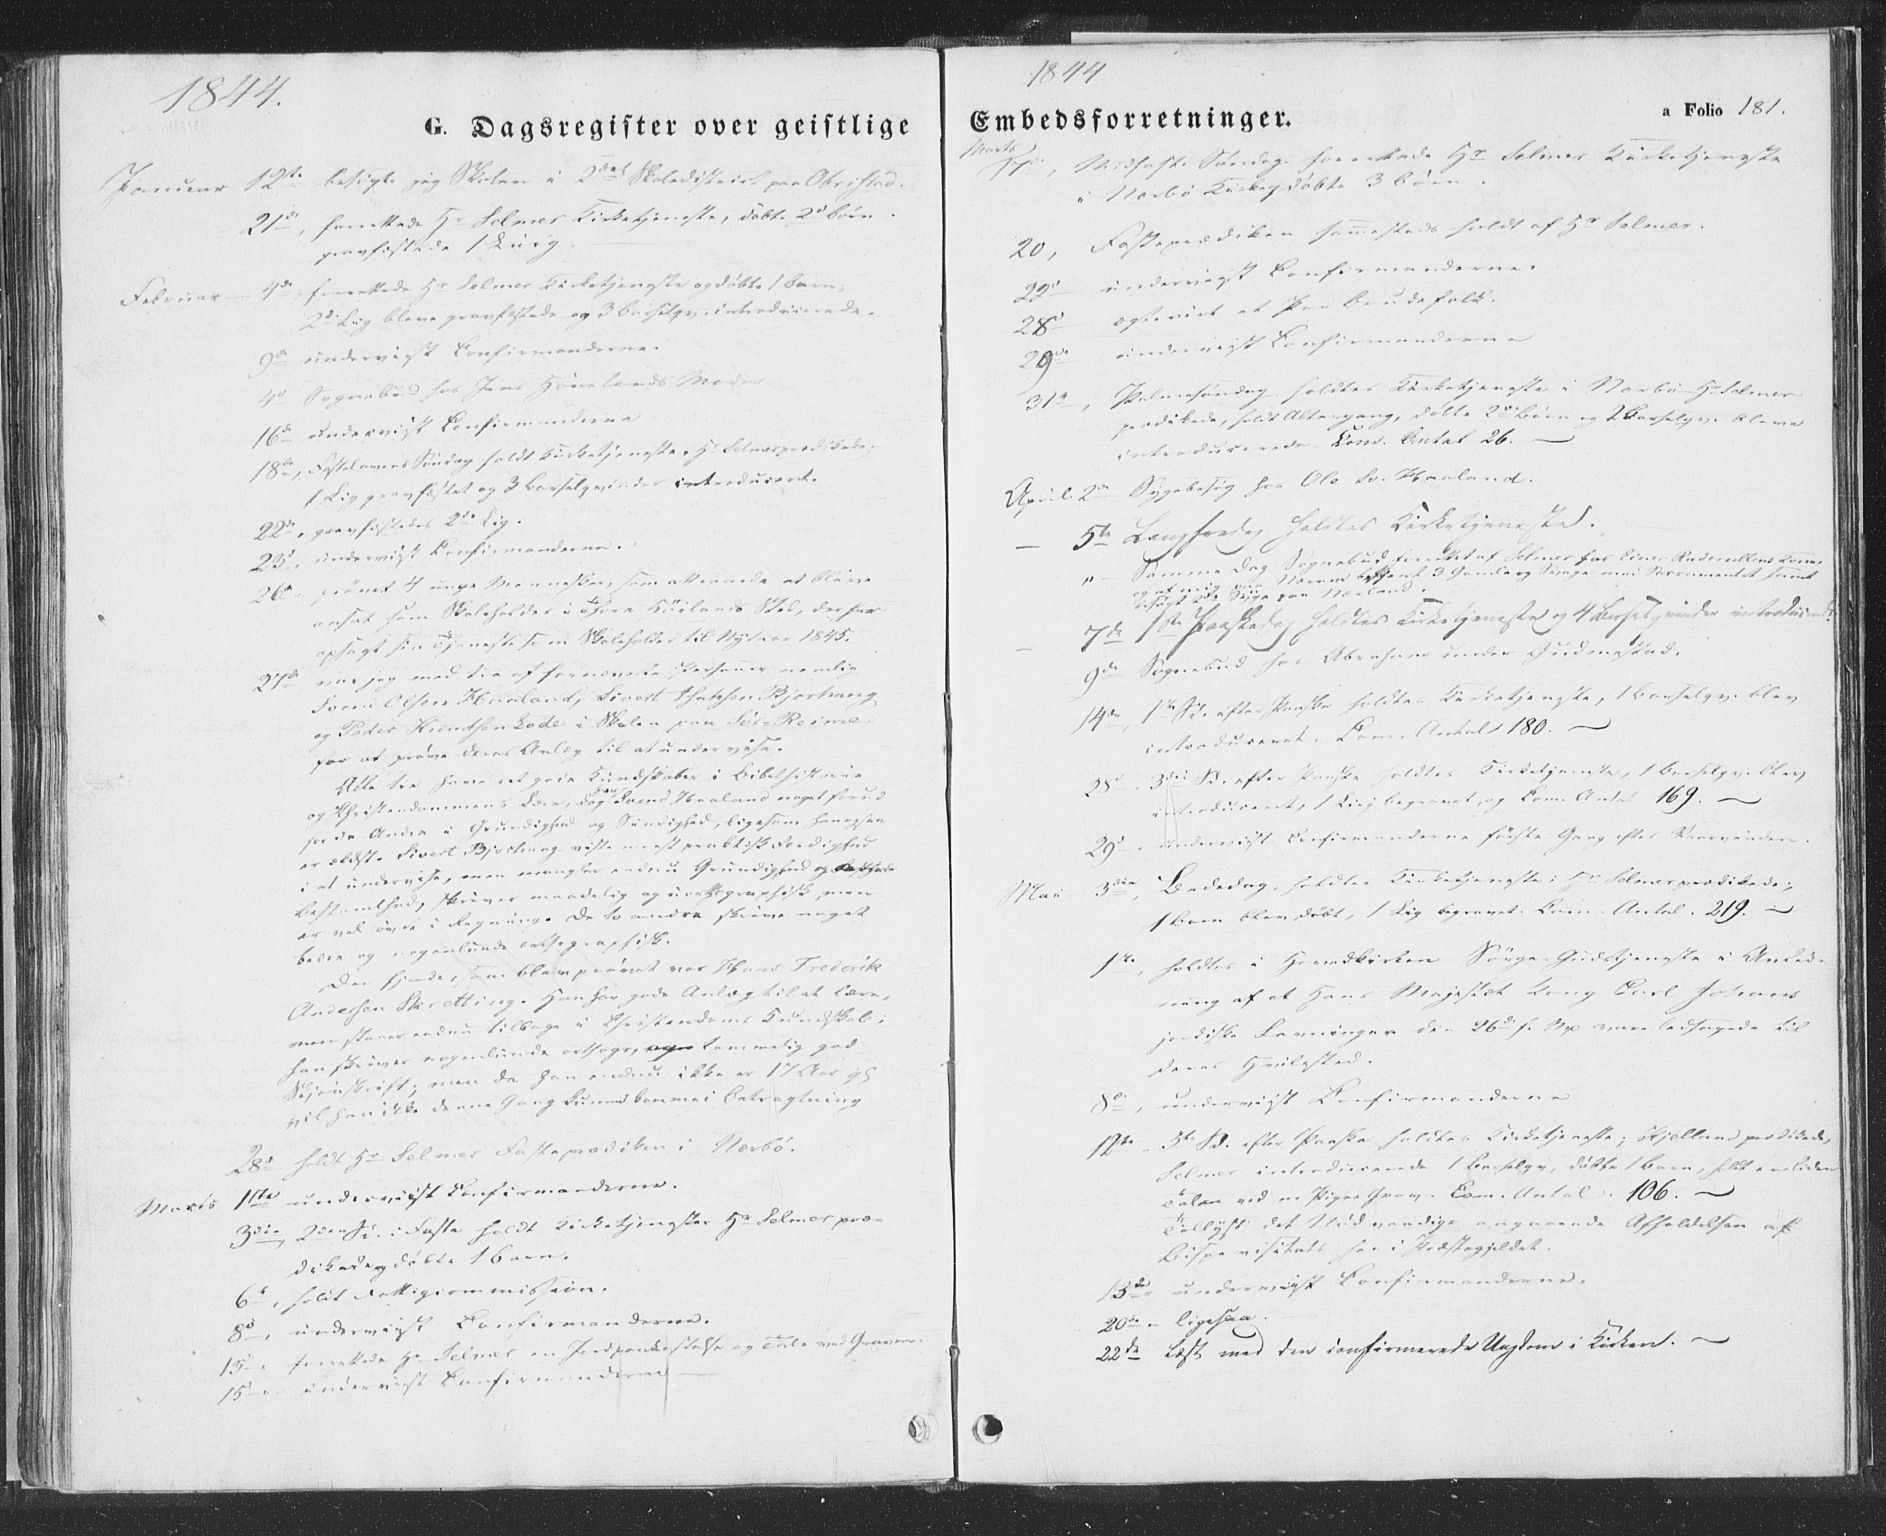 1844.
G. Dagsregister over geistlige
Januar 12te besigte jeg Skolen i 2det Skoledistrict paa Obrestad.
21de, forrettede Hr Selmer Kirketjeneste, døbte 2de børn.
gravfæstede 1 Liig.
Februar 4de, forrettede Hr Selmer Kirketjeneste og døbte 1 barn,
2de Liig bleve gravfæstede og 3 barselqv. introducerede.
9de underviist Confirmanderne.
4de Sognebud hos Jens Hølands Moder
16de underviist Confirmanderne
18de, Fastelavens Søndag holdt Kirketjeneste, Hr Selmer prædikede;
1 Liig gravfæstet og 3 barselqvinder introduceret.
22de, gravfæstedes 2de Lig.
23de, underviist Confirmanderne.
26de, prøvet 4 unge Mennesker, som attraaede at blive
ansat som Skoleholder i Thore Høilands Sted, der har
opsagt sin Tjeneste som Skoleholder til Nytaar 1845.
27de var jeg med tre af fornævnte Personer nemlig
Svend Olsen Haaland, Sivert Bjorhaug
og Peder Knudsen Lode i Skolen paa Sør-Reime,
for at prøve deres Anlæg til at undervise.
Alle tre have ret gode Kundskaber i Bibelhistorie
og Christendommens Lære, dog Svend Haaland noget forud
for de Andre i Grundighed og Sindighed, ligesom han ogsaa
er ældst. Sivert Bjorhaug viste meest praktisk Færdighed
i at undervise, men mangler endnu Grundighed og
bestemthed, skriver maadelig og uorthographisk, men
er vel øvet i Regning. De to andre skrive noget
bedre og nogenlunde orthographisk.
Den fjerde, som blev prøvet var Hans Frederik
Andersen Skretting. Han har gode Anlæg til at lære,
men staaer endnu tilbage i Christendoms Kundskab;
han skriver nogenlunde orthogr., temmelig god
Skjønskrift; men da han endnu ikke er 17 Aar gl.
vil han ikke denne Gang kunne komme i betragtning
28de holdt Hr Selmer Fasteprædiken i Nærbø.
Marts 1ste underviist Confirmanderne.
3die, 2den Sd. i Faste holdt Kirketjeneste Hr Selmer præ-
dikede og døbte 1 barn.
6te, holdt Fattigcommission.
8de, underviist Confirmanderne.
13de, forrettede Hr Selmer en Jordpaakastelse og Tale ved Graven.
15de underviist Confirmanderne
1844
Embedsforretninger.
a Folio 181.
Marts
17de, Midfaste Søndag forrettede Hr Selmer Kirketjeneste
i Nærbø Kirke, døbte 3 børn.
20, Fasteprædiken sammesteds holdt af Hr Selmer.
22de underviist Confirmanderne.
28de ægteviet et Par Brudefolk.
29de underviist Confirmanderne
31te, Palmesøndag holdtes Kirketjeneste i Nærbø. Hr Selmer
prædikede, holdt Altergang, døbte 2de børn og 2 Barselqv. bleve
introducerede. Com. Antal 26. —
April 2den Sygebesøg hos Ole Sv. Haaland.
— 5te Langfredag holdtes Kirketjeneste.
„ — Samme Dag Sognebud forrettet af Selmer hos Einer
og af mig paa Nærem betjent 3 Gamle og Svage med Sacramentet samt
besøgt 2de Syge paa Nærland.
— 7de 1ste Paaskedag holdtes Kirketjeneste og 4 Barselqvinder introduceret.
9de Sognebud hos Abraham under Gudmestad.
14de, 1ste Sd. efter Paaske holdtes Kirketjeneste, 1 barselqv. blev
introduceret. Com. Antal 180. —
28de, 3die Sd. efter Paaske holdtes Kirketjeneste, 1 Barselqv. blev
introduceret, 1 Liig begravet, og Com. Antal 169. —
29de underviist Confirmanderne første Gang efter Vaarvinden.
Mai 3die, Bededag, holdtes Kirketjeneste; Hr Selmer prædikede;
1 Barn blev døbt, 1 Lig begravet. Com. Antal. 219. —
1ste, holdtes i Hovedkirken Sørge-Gudstjeneste i Anled-
ning af at Hans Majestæt Kong Carl Johans
jordiske Levninger den 26de f. M. vare ledsagede til
deres Hvilested.
8de, underviist Confirmanderne
12te, 5te Sd. efter Paaske holdtes Kirketjeneste; Kjelland prædikede,
Selmer introducerede 1 Barselqv, døbte 1 Barn, holdt en liden
Tale ved en Piges Grav. Com. Antal. 106. —
Tillyst det Nødvendige angaaende Afholdelsen af
Bispevisitats her i Præstegjeldet.
13de underviist Confirmanderne.
20de — ligesaa.
22de Læst med den confirmerede Ungdom i Kirken. —